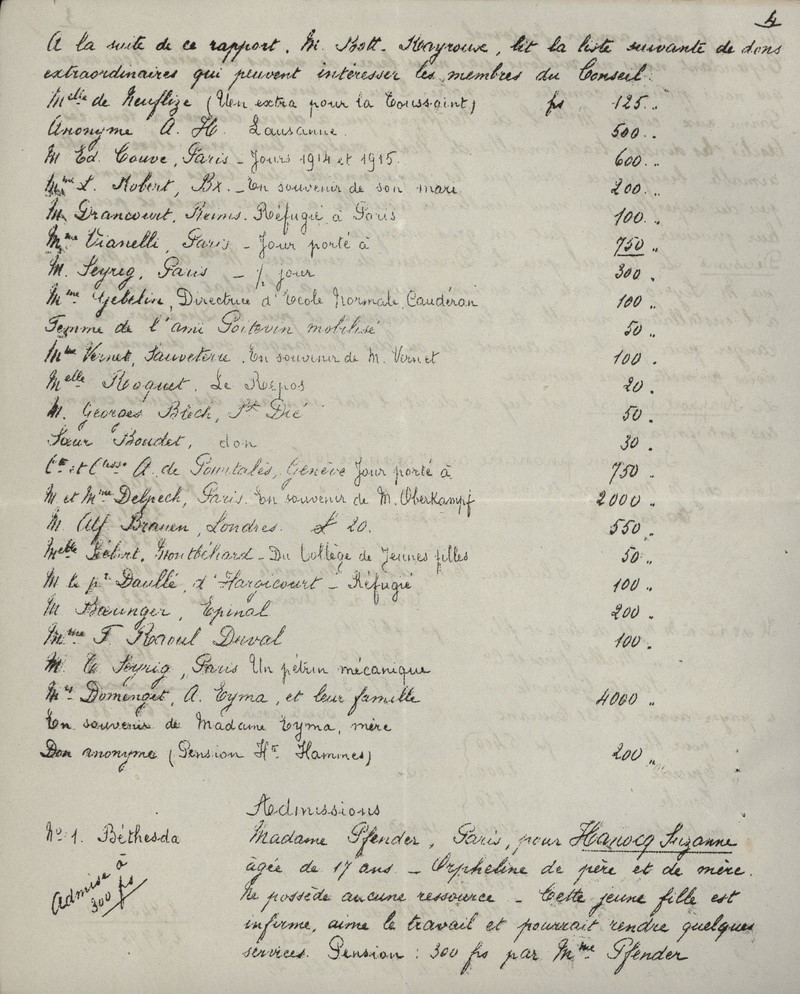 4
A la suite de ce rapport, M. Rott-Kayroux, lit la liste suivante de dons
extraordinaires qui peuvent intéresser les membres du Conseil.
Melle de Neuflize (Un extra pour la Toussaint) frs 125 "
Anonyme A. H. Lausanne. 500 "
M Ed. Couve, Paris - Jours 1914 et 1915. 600 "
Mme L. Robert, Bx. - En souvenir de son mari 200 "
M. Drancourt, Reims. Réfugié à Paris 100 "
Mme Vianelli, Paris - Jour porté à 750 "
M. Seyrig, Paris - ½ jour 300 "
Mme Gebelin, Directrice d'Ecole Normale, Caudéran 100 "
Femme de l'ami Poitevin mobilisé 50 "
Mme Vernet, Sauveterre. En souvenir de M. Vernet 100 "
Melle Roquet. Le Repos 20 "
M. Georges Bleck, St Dié 50 "
Sœur Boudet, don 30 "
Cte et Ctesse A. de Pourtalès, Genève Jour porté à 750 "
M. et Mme Delpeck, Paris. En souvenir de M. Oberkampf 2000 "
M Alf Brauen, Londres. £ 20. 550 "
Melle Montbéliard - Du Collège de Jeunes filles 50 "
M le pr Daullé, d'Hargicourt - Réfugié 100 "
M Epinal 200 "
Mme F. Raoul Duval 100 "
M. Seyrig, Paris Un pétrin mécanique
Mrs Domenget, A. Eyma, et leur famille 4000 "
En souvenir de Madame Eyma, mère
Don anonyme (Pension Hamines) 200 "
Admissions
No 1. Béthesda Madame Pfender, Paris, pour Hanocq Suzanne
âgée de 17 ans - Orpheline de père et de mère.
Admise à
300 frs
Ne possède aucune ressource - Cette jeune fille est
infirme, aime le travail et pourrait rendre quelques
services. Pension : 300 frs par Mme Pfender